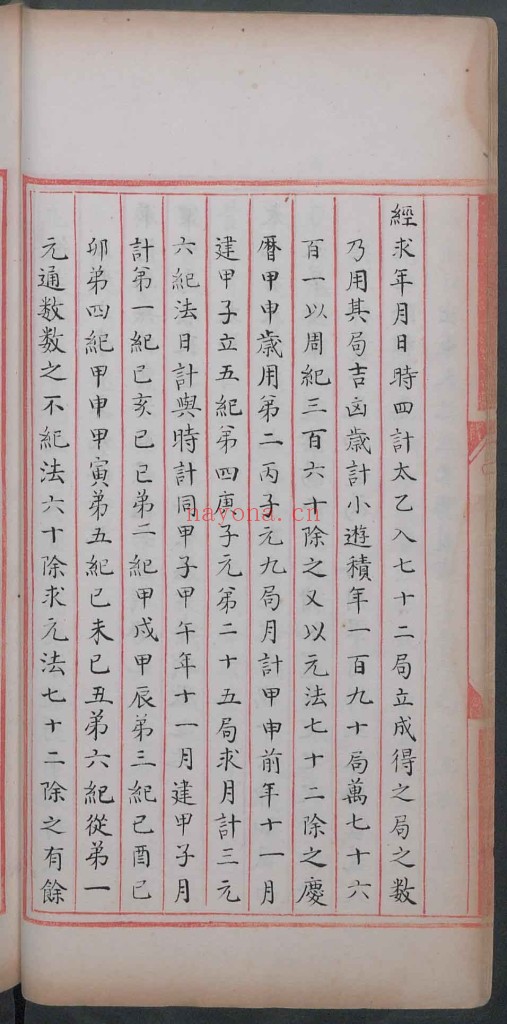 經求年月日時四計太乙入七十二局立成得之局之數
乃用其局吉凶歲計小遊積年一百九十局萬七十六
百一以周紀三百六十除之又以元法七十二除之慶
曆甲申歲用第二丙子元九局月計甲申前年十一月
建甲子立五紀第四庚子元第二十五局求月計三元
六紀法日計與時計同甲子甲午年十一月建甲子月
計第一紀己亥己巳第二紀甲戌甲辰第三紀己酉己
卯第四紀甲申甲寅第五紀己未己丑第六紀從第一
元通数数之不紀法六十除求元法七十二除之有餘
nayona.cn